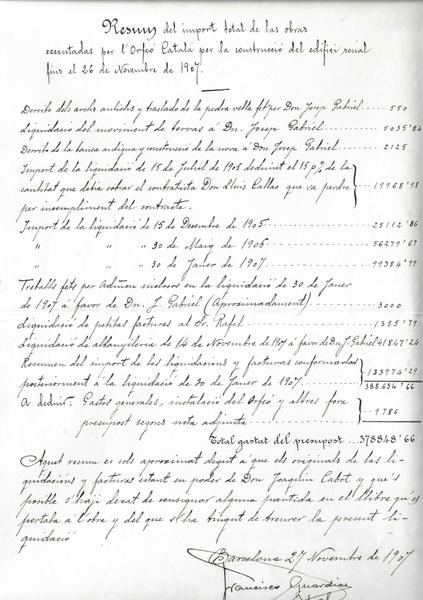 Resum del import total de las obras
executadas per l'Orfeó Catalá per la construcció del edifici social
fins el 26 de Novembre de 1907.
Derribo dels archs antichs y traslado de la pedra vella fet per Don Josep Gabriel 550
Liquidació del moviment de terras á Dn. Josep Gabriel 5035'84
Derribo de la tanca antigua y construcció de la nova á Don Josep Gabriel 2125
Import de la liquidació de 15 de Juliol de 1905 deduint el 15 p% de la
cantitat que debia cobrar el contratista Don Lluis Callao que va perdre 19968'98
per incompliment del contracte.
Import de la liquidació de 15 de Desembre de 1905 25112'86
" " " 30 de Maig de 1906 56279'67
" " " 30 de Janer de 1907 99384'99
Treballs fets per Admon inclosos en la liquidació de 30 de Janer
de 1907 á favor de Dn. J. Gabriel (Aproximadament) 3000
Liquidació de petitas facturas al Sr. Rafel 1355'79
Liquidació de albanyileria de 14 de Novembre de 1907 á favor de Dn J. Gabriel 41847'24
Resumen del import de las liquidacions y facturas conformadas
posteriorment á la liquidació de 30 de Janer de 1907 133974'29
388.634'66
A deduir: Gastos generales, instalació del Orfeó y altres fora
presupost segons nota adjunta 9786
Total gastat del presupost 378848'66
Aquet resum es sols aproximat degut á que els originals de las li-
quidacions y facturas estant en poder de Don Joaquim Cabot y que's
posible s'haji deixat de consignar alguna partida en el llibre qu'es
portaba á l'obra y del que s'ha tingut de treurer la present li-
quidació
Barcelona 27 Novembre de 1907
Francisco Guardia